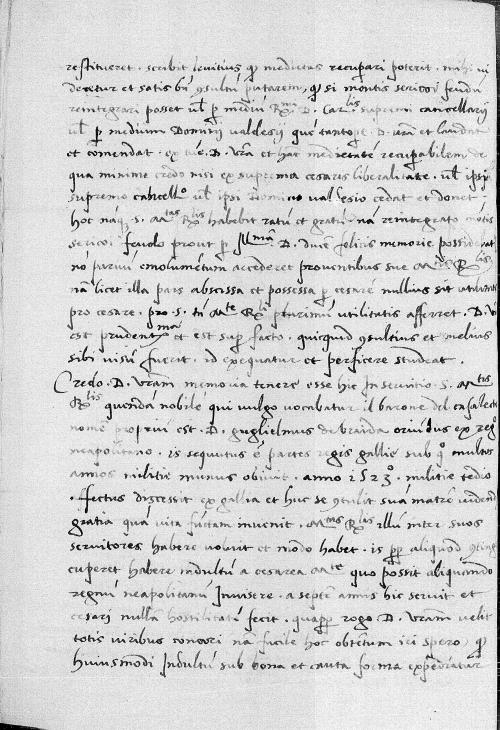 restitueret . scribit levitius ꝙ medietas recuperari poterit . mihi vi
deretur et satis bń ꝯsultū putarem, ꝙ si montis serico feudū
reintegrari posset vl̄ ꝑ mediū R.mi D. Car.lis supremi cancellarij
vl̄ ꝑ medium Domini valdesij quē tantoꝑe . D. vrā et laudat
et comendat . ex tūc . D. vrā et hāc medietatē recuperabilem de
qua minime credo nisi ex suprema cesaris liberalitate . vl̄ ipsi
supremo cancello vl̄ ipsi Domino valdesio cedat et donet .
hoc nāq. s. Mtas Rlis habebit ratū et gratū . nā reintegrato mōtis
serico feudo prout ꝑ Illma D. ducē felicis memorie possidebat
nō parvū emolumētum accederet proventibus sue Mtis Rlis
nā licet illa pars abscissa et possessa ꝑ cesarē nullius sit utilitatis
pro cesare . pro s. tn̄ Mte Rli plurimū utilitatis afferret . D. V
est prudentma et est suꝑ facto . quicquid ꝯsultius et melius
sibi visū fuerit . id exequatur et perficere studeat .
Credo . D. Vram memoria tenere esse hic In servitio . S. Mtis
Rlis quendā nobilē qui vulgo vocabatur il barone del casaleto
nomē propriū est . D. guglielmus de braida oriūdus ex regᵒ
neapolitano . is sequutus ē partes regis gallie sub qᵒ multos
annos militie munus obivit . anno 1523ᵒ . militie tedio
. ffectus discessit ex gallia et huc se ꝯtulit sua matrē videndi
gratia quā vita functam invenit . Mtas Rlis illū inter suos
servitores habere voluit et modo habet . is ꝓꝑ aliquod
cuperet habere indultū a cesarea Mte quo possit aliquando
regnū neapolitanū Invisere . a septē annis hic servit et
cesari nullā hostilitatē fecit . quaꝓꝑ rogo . D. Vram velit
totis viribus conari nā facile hoc obtētum iri spero, ꝙ
huiusmodi Indultū sub bona et cauta forma expediatur